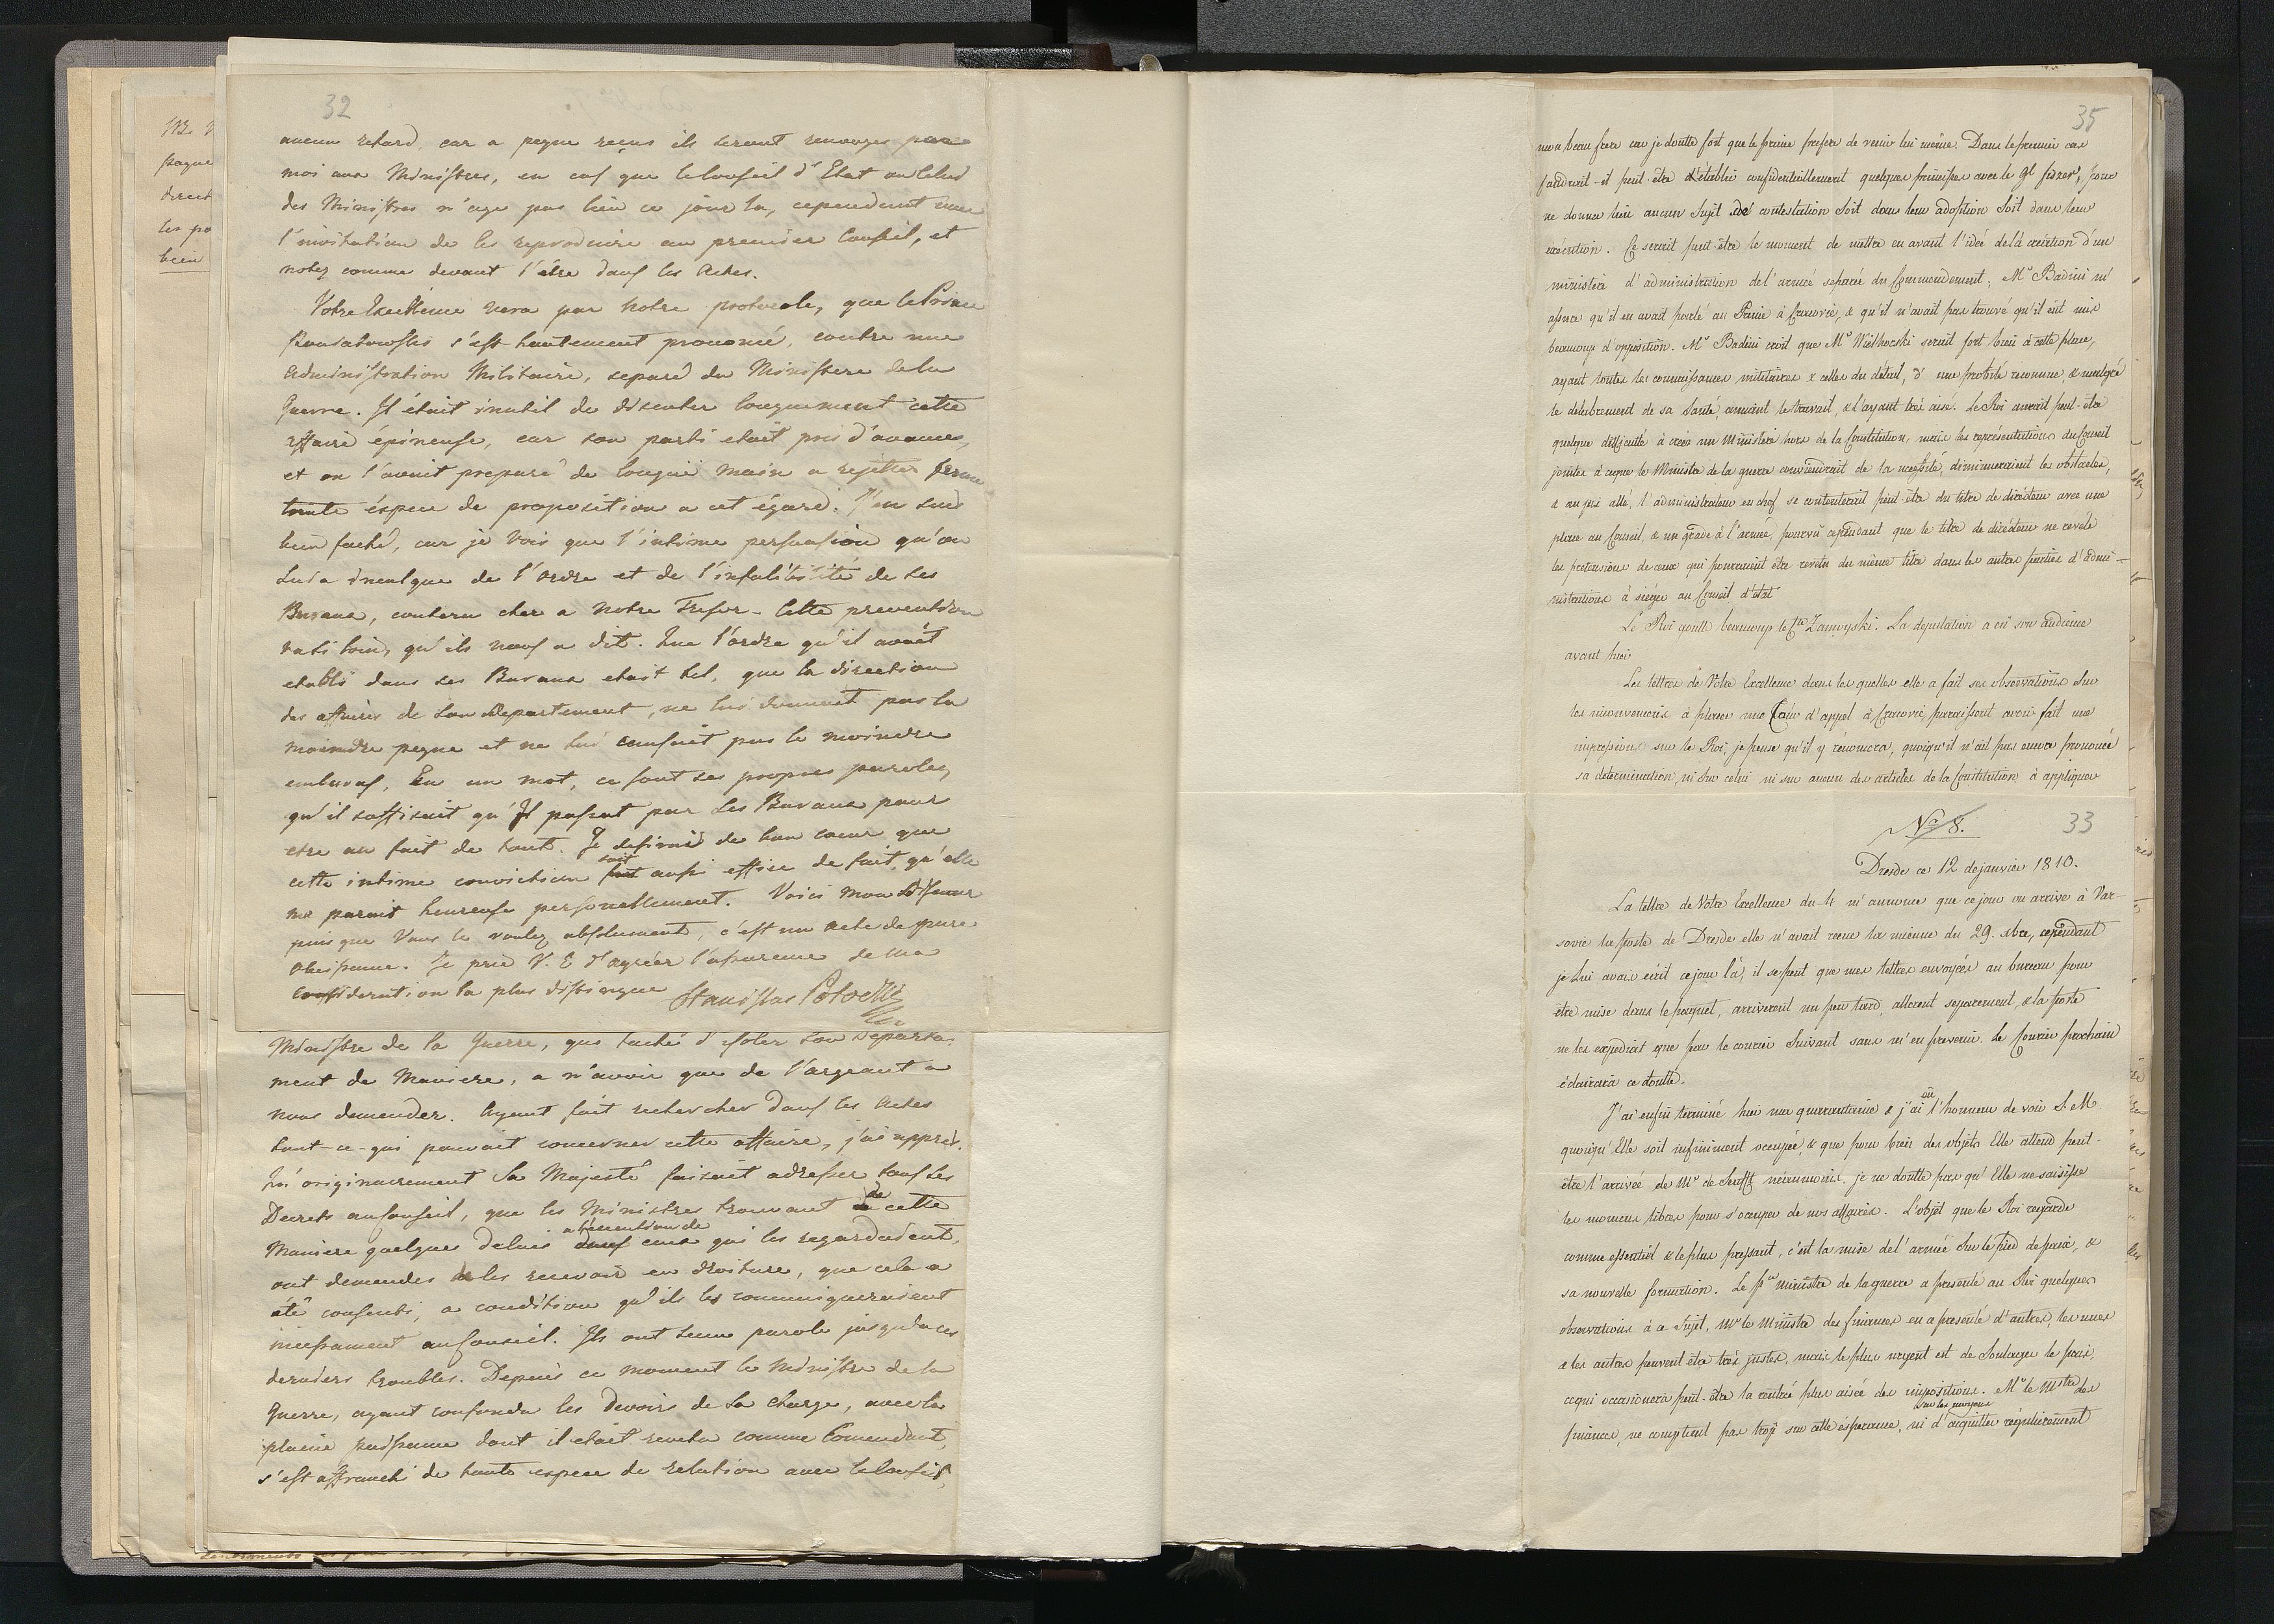 32
aucun retard, car a peyne reçus ils seront renvoyes par
moi aux Ministres, en cas que le Conseil d'Etat ou celui
des Ministres n'aye pas lieu ce jour la, cependent avec
l'invitation de les reproduire au premier Conseil, et
notez comme devant l'etre dans les Actes.
Votre Excellence vera par notre protocole, que le Prince
Poniatowski s'est hautement prononcé, contre une
Administration Militaire, separé du Ministere de la
Guerre. Il était inutil de discuter longuement cette
affaire épineuse, car son parti etait pris d'avance,
et on l'avait preparé de longue main a rejetter
toute éspece de proposition a cet égard. J'en suis
bien faché, car je vois que l'intime persuasion qu'on
lui a inculque de l'ordre et de l'infalibilité de ses
Bureaux, coutera cher a notre Tresor. Cette prevention
va si loin, qu'il nous a dit. Que l'ordre qu'il avait
etabli dans ses Bureaux etait tel, que la direction
des affaires de son Departement, ne lui donnait pas la
moindre peyne et ne lui causait pas le moindre
embaras, En un mot, ce sont ses propres paroles,
qu'il suffisait qu'Il passat par ses Bureaux pour
etre au fait de tout. Je desirais de bon coeur que
cette intime conviction soit aussi de fait, qu'elle
me parait heureuse personellement. Voici mon
puisque Vous le voulez absolument, c'est un acte de pure
obeissance. Je prie V. E d'agréer l'assurance de ma
consideration la plus distingue Stanislas Potocki
Ministre de la Guerre, qui taché d'isoler son Departe-
ment de Maniere, a n'avoir que de l'argeant a
nous demender. Ayant fait rechercher dans les Actes
tout ce qui pouvait concerner cette affaire, j'ai appris
originairement Sa Majesté faisait adresser tous ses
Decrets au Conseil, que les Ministres trouvant de cette
Maniere quelques delais a l'execution de ceux qui les regardaient,
ont demendes de les recevoir en droiture, que cela a
été consenti, a condition qu'ils les communiqueraient
incessament au Conseil. Ils ont tenu parole jusqu'a ces
derniers troubles. Depuis ce moment le Ministre de la
Guerre, ayant confondu les Devoirs de sa charge, avec la
pleine puissance dont il etait revetu comme Comendant,
s'est affranchi de toute espece de relation avec le Conseil,
35
mon beau frere car je doutte fort que le prince préfere de venir lui même. Dans le premier cas
faudrait-il peut-être d'établir confidentiellement quelques principes avec le Gl, pour
ne donner lieu aucun sujet de contestation soit dans leur adoption soit dans leur
exécution. Ce serait peut-être le moment de mettre en avant l'idée de la création d'un
ministère d'administration de l'armée separée du Commendement; Mr Badini m'
assure qu'il en avait parlé au Prince à Cracovie, & qu'il n'avait pas trouvé qu'il eut mis
beaucoup d'opposition. Mr Badini croit que Mr Wielhorski serait fort bien à cette place,
ayant toutes les connaissances militaires & celles du détail, d'une probité reconnue, & malgré
le delabrement de sa santé, aimant le travail, & l'ayant très aisé. Le Roi aurait peut-être
quelque difficulté à créer un Ministère hors de la Constitution, mais les représentations du Conseil
jointes à ce que le Ministre de la guerre conviendrait de la necessité, diminueraient les obstacles,
& au pis allé, l'administrateur en chef se contenterait peut-être du titre de directeur avec une
place au Conseil, & un grade à l'armée, pourvû cependant que le titre de directeur ne
les pretensions de ceux qui pourraient être revetu du même titre dans les autres parties d'admi-
nistrations à siéger au Conseil d'état
Le Roi goûtte beaucoup le Cte Zamoyski. La deputation a eû son audience
avant hier
Les lettres de Votre Excellence dans les quelles elle a fait ses observations sur
les inconveniens à placer une Cour d'appel à Cracovie, paraissent avoir fait une
impression sur le Roi, je pense qu'il y renoncera, quoiqu'il n'ait pas encore prononcé
sa détermination, ni sur celui ni sur aucun des articles de la Constitution à appliquer
Nr 8.
33
Dresde ce 12 de janvier 1810.
La lettre de Votre Excellence du 4 m'annonce que ce jour où arrive à Var-
sovie la poste de Dresde elle n'avait reçue la mienne du 29. xbre, cependant
je lui avais écrit ce jour là, il se peut que mes lettres envoyées au bureau pour
être mise dans le paquet, arrivèrent un peu tard, allerent separement, & la poste
ne les expediat que par le courier suivant sans m'en prevenir. Le Courier prochain
éclairera ce doutte.
J'ai enfin terminé hier ma quarantaine & j'ai eû l'honneur de voir S. M
quoiqu'Elle soit infiniment occupée, & que pour bien des objets Elle attend peut-
être l'arrivée de Mr de Senfft néanmoins je ne doutte pas qu'Elle ne saisisse
les momens libres pour s'occuper de nos affaires. L'objet que le Roi regarde
comme essentiel & le plus pressant, c'est la mise de l'armée sur le pied de paix, &
sa nouvelle formation. Le Pce ministre de la guerre a presenté au Roi quelques
observations à ce sujet, Mr le Ministre des finances en a presenté d'autres, les unes
& les autres peuvent être très justes, mais le plus urgent est de soulager le païs,
ce qui occasionera peut-être la rentrée plus aisée des impositions. Mr le Mstre des
finances, ne comptant pas trop sur cette ésperance, ni sur les moyens d'acquitter régulierement